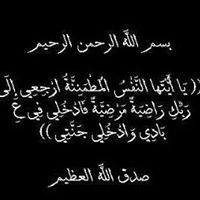 بسم الله الرحمن الرحيم
(( يَا أَيَّتُهَا النَّفْسُ الْمُطْمَئِنَّةُ ارْجِعِي إِلَى
رَبِّكِ رَاضِيَةً مَرْضِيَّةً فَادْخُلِي فِي عِ
بَادِي وَادْخُلِي جَنَّتِي ))
صدق الله العظيم